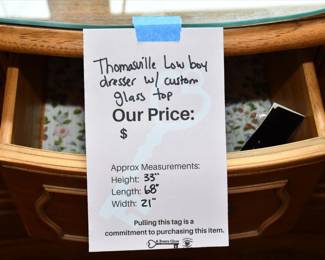 Thomasville Low boy
dresser w/ custom
glass top
Our Price:
$
Approx Measurements:
Height: 33"
Length: 68"
Width: 21"
Pulling this tag is a
commitment to purchasing this item.